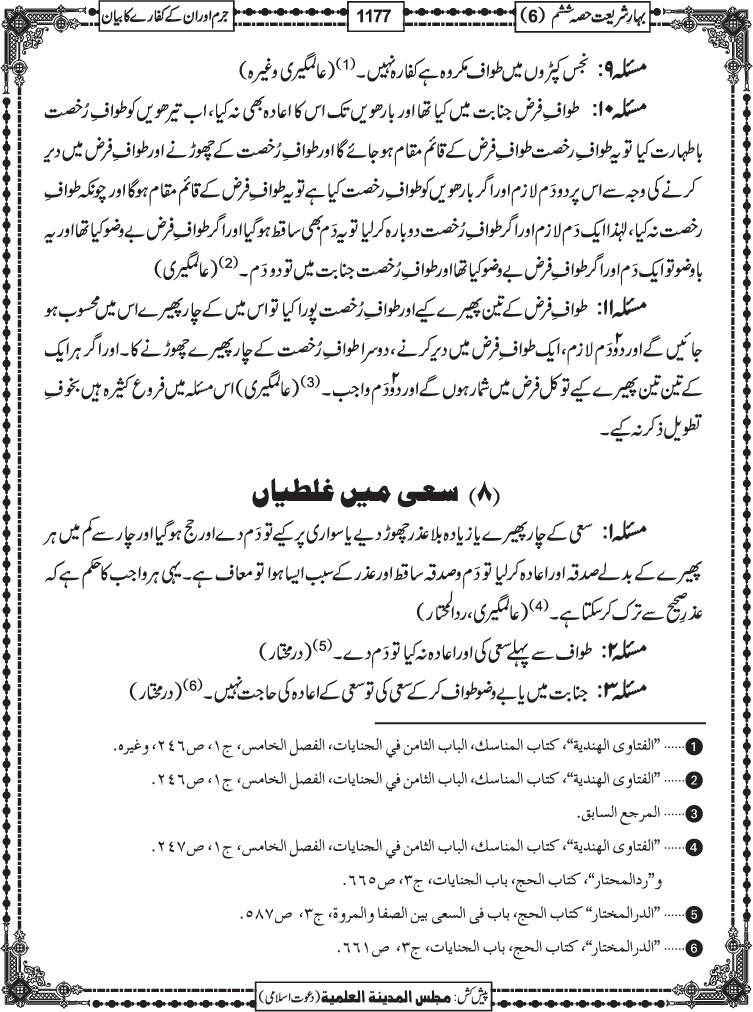 بہارِ شریعت حصہ ششم (6)
1177
جرم اور ان کے کفارے کا بیان
مسئلہ ۹: نجس کپڑوں میں طواف مکروہ ہے کفارہ نہیں۔(1) (عالمگیری وغیرہ)
مسئلہ ۱۰: طوافِ فرض جنابت میں کیا تھا اور بارھویں تک اس کا اعادہ بھی نہ کیا، اب تیرھویں کو طوافِ رُخصت
باطہارت کیا تو یہ طوافِ رخصت طوافِ فرض کے قائم مقام ہو جائے گا اور طوافِ رُخصت کے چھوڑنے اور طوافِ فرض میں دیر
کرنے کی وجہ سے اس پر دو دَم لازم اور اگر بارھویں کو طوافِ رخصت کیا ہے تو یہ طوافِ فرض کے قائم مقام ہوگا اور چونکہ طوافِ
رخصت نہ کیا، لہٰذا ایک دَم لازم اور اگر طوافِ رُخصت دوبارہ کرلیا تو یہ دَم بھی ساقط ہوگیا اور اگر طوافِ فرض بے وضو کیا تھا اور یہ
باوضو تو ایک دَم اور اگر طوافِ فرض بے وضو کیا تھا اور طوافِ رُخصت جنابت میں تو دو دَم۔(2) (عالمگیری)
مسئلہ ۱۱: طوافِ فرض کے تین پھیرے کیے اور طوافِ رُخصت پورا کیا تو اس میں کے چار پھیرے اس میں محسوب ہو
جائیں گے اور دو۲ دَم لازم، ایک طوافِ فرض میں دیر کرنے، دوسرا طوافِ رُخصت کے چار پھیرے چھوڑنے کا۔ اور اگر ہر ایک
کے تین تین پھیرے کیے تو کل فرض میں شمار ہوں گے اور دو۲ دَم واجب۔(3) (عالمگیری) اس مسئلہ میں فروع کثیرہ ہیں بخوفِ
تطویل ذکر نہ کیے۔
(۸) سعی میں غلطیاں
مسئلہ ۱: سعی کے چار پھیرے یا زیادہ بلا عذر چھوڑ دیے یا سواری پر کیے تو دَم دے اور حج ہوگیا اور چار سے کم میں ہر
پھیرے کے بدلے صدقہ اور اعادہ کرلیا تو دَم وصدقہ ساقط اور عذر کے سبب ایسا ہوا تو معاف ہے۔ یہی ہر واجب کا حکم ہے کہ
عذرِ صحیح سے ترک کرسکتا ہے۔(4) (عالمگیری، ردالمحتار)
مسئلہ ۲: طواف سے پہلے سعی کی اور اعادہ نہ کیا تو دَم دے۔(5) (درمختار)
مسئلہ ۳: جنابت میں یا بے وضو طواف کر کے سعی کی تو سعی کے اعادہ کی حاجت نہیں۔(6) (درمختار)
1 ...... ”الفتاوى الهندية“، كتاب المناسك، الباب الثامن في الجنايات، الفصل الخامس، ج۱، ص۲٤٦، وغيره.
2 ...... ”الفتاوى الهندية“، كتاب المناسك، الباب الثامن في الجنايات، الفصل الخامس، ج۱، ص۲٤٦.
3 ...... المرجع السابق.
4 ...... ”الفتاوى الهندية“، كتاب المناسك، الباب الثامن في الجنايات، الفصل الخامس، ج۱، ص۲٤۷.
و”ردالمحتار“، كتاب الحج، باب الجنايات، ج۳، ص٦٦٥.
5 ...... ”الدرالمختار“ كتاب الحج، باب فى السعى بين الصفا والمروة، ج۳، ص٥۸۷.
6 ...... ”الدرالمختار“، كتاب الحج، باب الجنايات، ج۳، ص٦٦۱.
پیش کش: مجلس المدینة العلمیة (دعوت اسلامی)